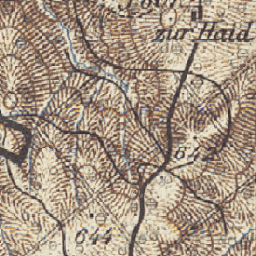 zur Haid
642
644